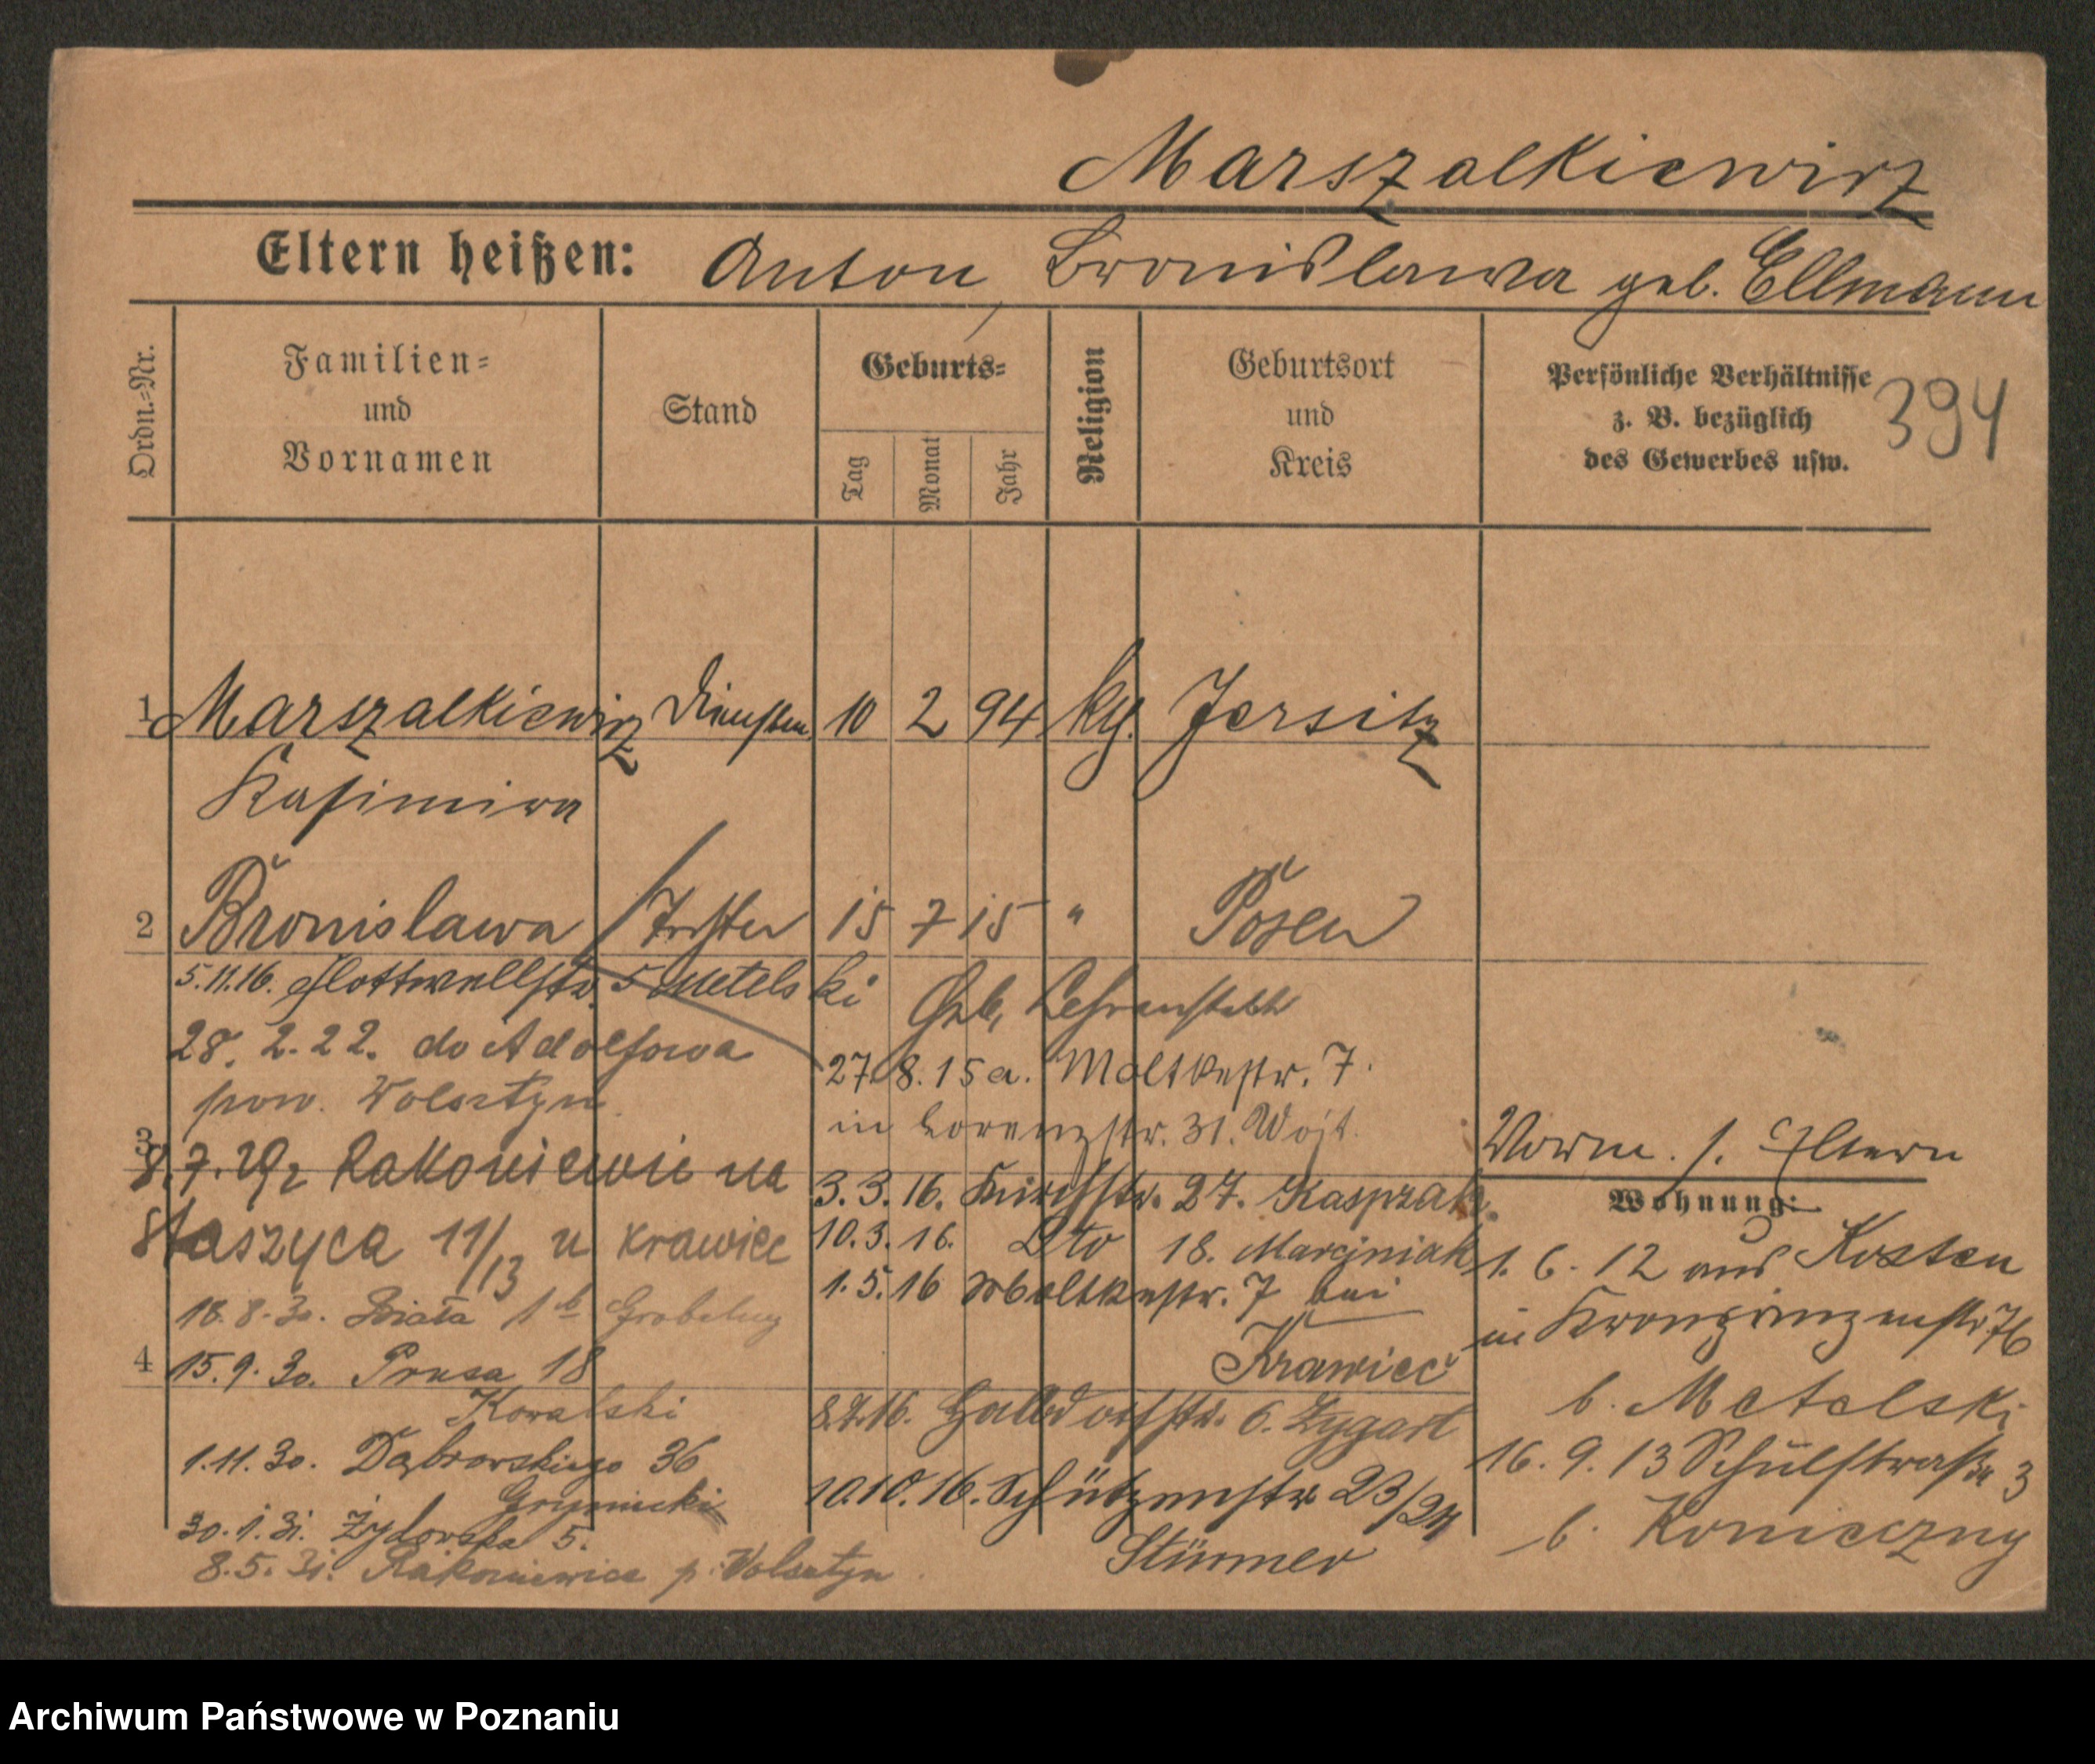 Marszalkiewicz
Eltern heißen: Anton, Bronislawa geb. Ellmann
Ordn.-Nr.
Familien-
und
Vornamen
Stand
Geburts-
Tag
Monat
Jahr
Religion
Geburtsort
und
Kreis
Persönliche Verhältnisse
z. B. bezüglich
des Gewerbes usw.
394
1 Marszalkiewicz 10 2 94 kg. Jersitz
Kasimira
2 Bronislawa Tochter 15 7 15 " Posen
5.11.16. Flottwellstr. 5 Metelski
28. 2. 22. do Adolfowa
pow. Wolsztyn
3
8.7.29 z Rakoniewic na
Staszyca 11/13 u Krawiec
18.8.30. Biała 1b Grobelny
4
15.9.30. Prusa 18
Kowalski
1.11.30. Dąbrowskiego 36
30.1.31. Żydowska 5.
8.5.31. Rakoniewice p. Wolsztyn
Geb. Lehranstalt
27.8.15 a. Moltkestr. 7.
in Lorenzstr. 31. Wojt.
3.3.16. Kirchstr. 27. Kasprzak
10.3.16. Dto 18. Marciniak
1.5.16 Moltkestr. 7 bei
Krawiec
6. Zygart
10.10.16. Schützenstr 23/24
Stürmer
Vorm. s. Eltern
Wohnung:
1. 6. 12 aus Kosten
in Kronprinzenstr. 76
b. Metelski
16. 9. 13 Schulstraße 3
b. Konieczny
Archiwum Państwowe w Poznaniu